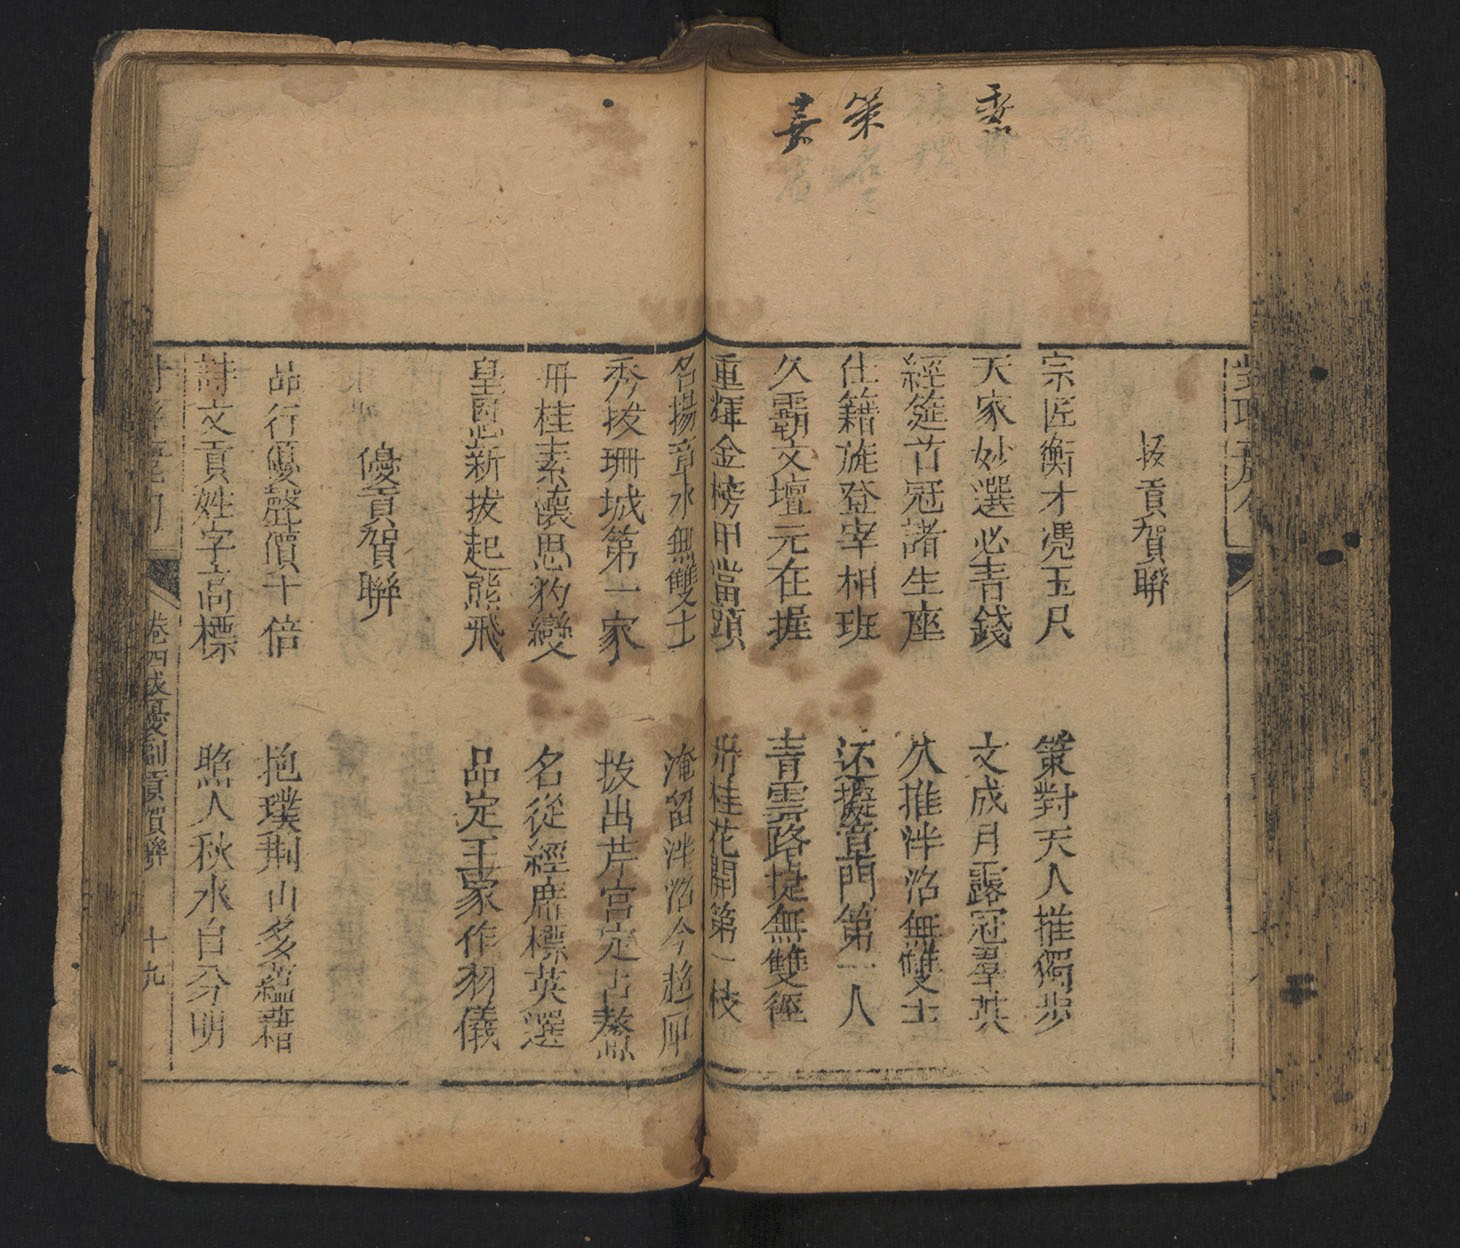 嘉
策
拔貢賀聯
宗匠衡才憑玉尺 策對天人推獨步
天家妙選必青錢 文成月露冠羣英
經筵首冠諸生座 久推泮沼無雙士
仕籍旋登宰相班 还擬簹門第一人
久霸文壇元在握 青雲路捷無雙徑
重輝金榜甲當頭 丹桂花開第一枝
名揚章水無雙士 淹留泮沼今超
秀拔珊城第一家 拔出芹宮定占鰲
丹桂素懷思豹變 名從經席標英選
皇恩新拔起熊飛 品定王家作羽儀
優貢賀聯
品行優聲價十倍 抱璞荆山多蘊藉
詩文貢姓字高標 照人秋水白分明
卷四拔優副貢賀聯 十九